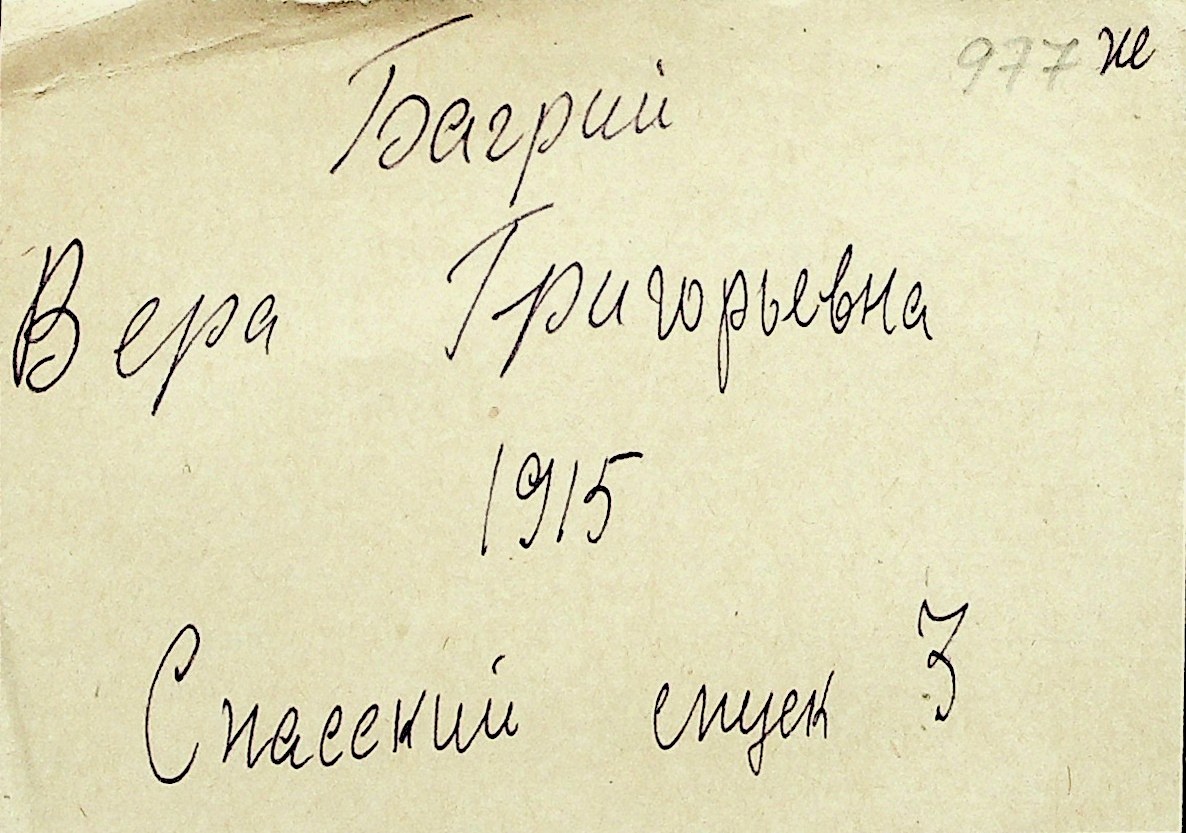 977 же
Багрий
Вера Григорьевна
1915
Спасский спуск 3